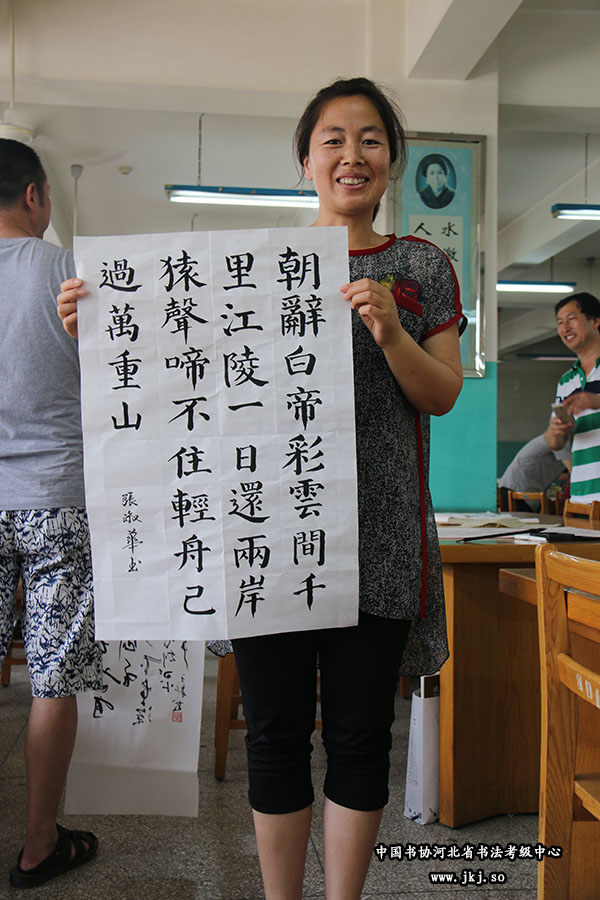 朝辭白帝彩雲間千
里江陵一日還兩岸
猿聲啼不住輕舟己
過萬重山
張淑華书
中国书协河北省书法考级中心
www.jkj.so